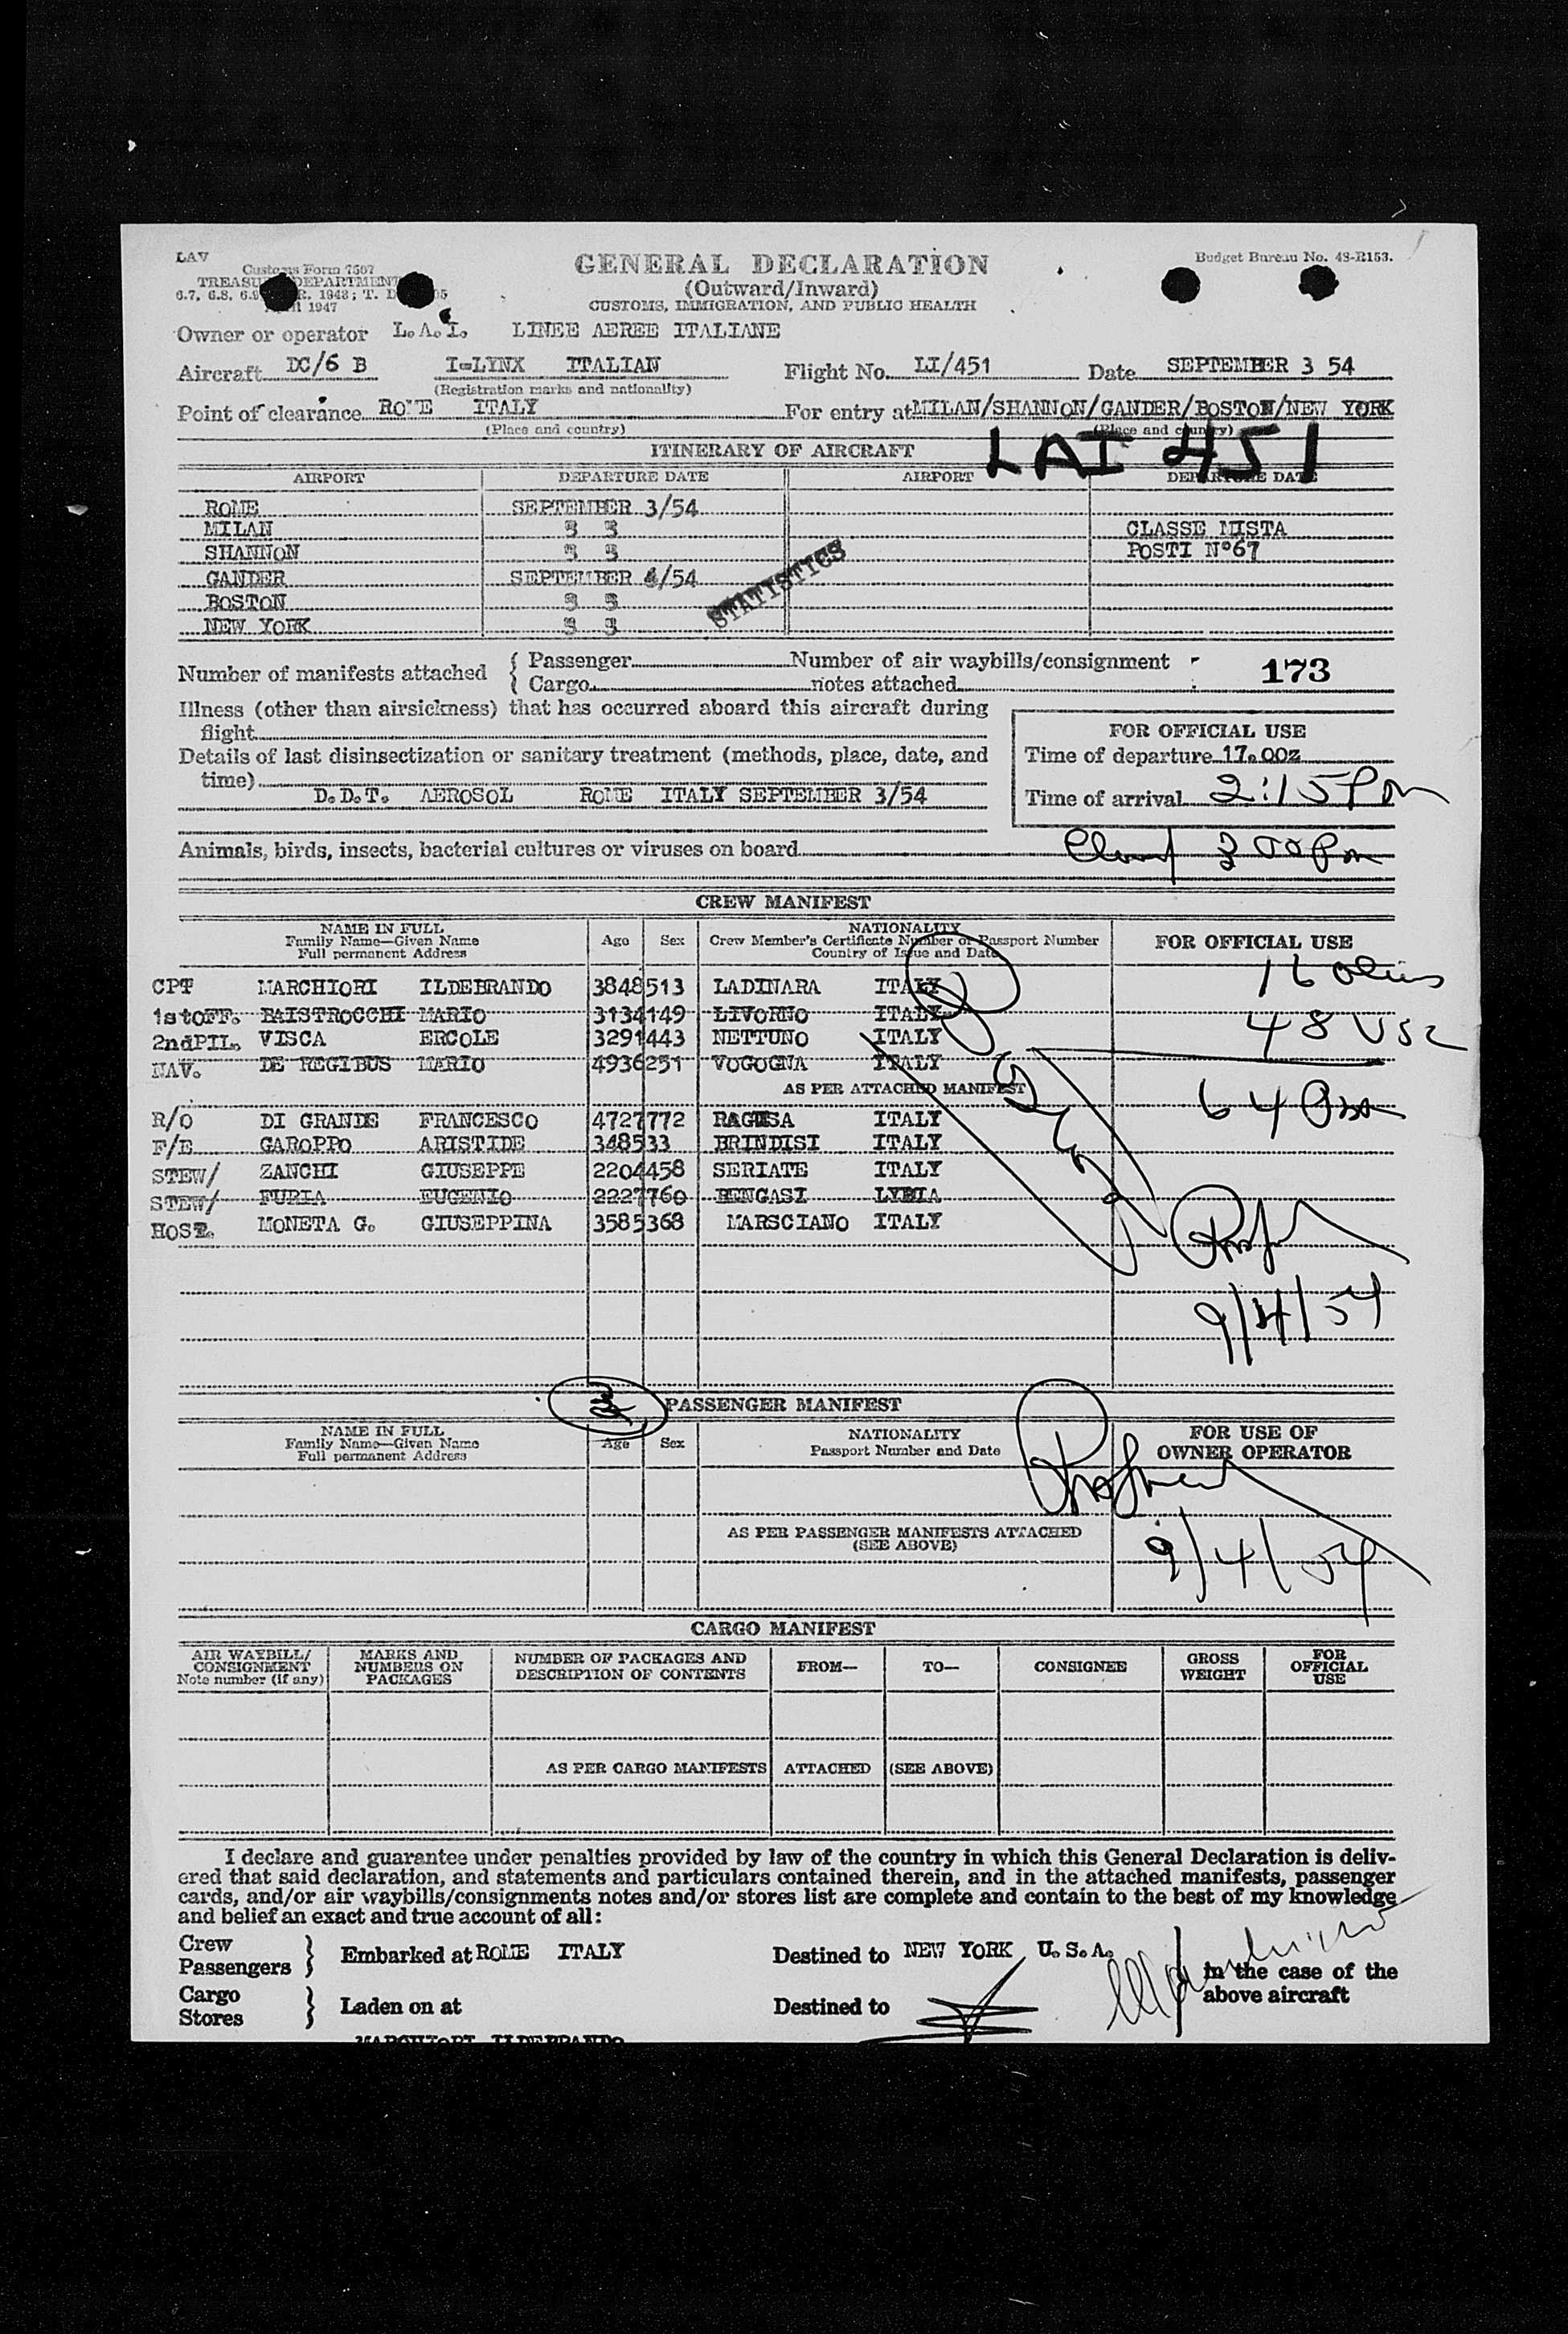 LAV
Customs Form 7507
TREASURY DEPARTMENT
6.7, 6.8, 6.9 1948; T. D.
1947
GENERAL DECLARATION
(Outward/Inward)
CUSTOMS, IMMIGRATION, AND PUBLIC HEALTH
Budget Bureau No. 48-R153.
Owner or operator L.A.I. LINEE AEREE ITALIANE
Aircraft DC/6 B I=LYNX ITALIAN Flight No. LI/451 Date SEPTEMBER 3 54
(Registration marks and nationality)
Point of clearance ROME ITALY For entry at MILAN/SHANNON/GANDER/BOSTON/NEW YORK
(Place and country) (Place and country)
LAI 451
ITINERARY OF AIRCRAFT
AIRPORT DEPARTURE DATE AIRPORT DEPARTURE DATE
ROME SEPTEMBER 3/54
MILAN 3 3 CLASSE MISTA
SHANNON 3 3 POSTI N°67
GANDER SEPTEMBER 4/54
BOSTON 3 3
NEW YORK 3 3
STATISTICS
Number of manifests attached { Passenger Number of air waybills/consignment
Cargo notes attached
173
Illness (other than airsickness) that has occurred aboard this aircraft during
flight
Details of last disinsectization or sanitary treatment (methods, place, date, and
time)
D.D.T. AEROSOL ROME ITALY SEPTEMBER 3/54
FOR OFFICIAL USE
Time of departure 17.00z
Time of arrival 2:15 Pm
Animals, birds, insects, bacterial cultures or viruses on board
3 00 Pm
CREW MANIFEST
NAME IN FULL
Family Name—Given Name
Full permanent Address
Age Sex
NATIONALITY
Crew Member's Certificate Number or Passport Number
Country of Issue and Date
FOR OFFICIAL USE
CPT MARCHIORI ILDEBRANDO 3848513 LADINARA ITALY
1stOFF. BAISTROCCHI MARIO 3134149 LIVORNO ITALY
2ndPIL. VISCA ERCOLE 3291443 NETTUNO ITALY
NAV. DE REGIBUS MARIO 4936251 VOGOGNA ITALY
AS PER ATTACHED MANIFEST
R/O DI GRANDE FRANCESCO 4727772 RAGUSA ITALY
F/E GAROPPO ARISTIDE 348533 BRINDISI ITALY
STEW/ ZANCHI GIUSEPPE 2204458 SERIATE ITALY
STEW/ FURIA EUGENIO 2227760 BENGASI LYBIA
HOST. MONETA G. GIUSEPPINA 3585368 MARSCIANO ITALY
16
48 USC
64
9/4/54
PASSENGER MANIFEST
NAME IN FULL
Family Name—Given Name
Full permanent Address
Age Sex
NATIONALITY
Passport Number and Date
FOR USE OF
OWNER OPERATOR
AS PER PASSENGER MANIFESTS ATTACHED
(SEE ABOVE)
9/4/54
CARGO MANIFEST
AIR WAYBILL/
CONSIGNMENT
Note number (if any)
MARKS AND
NUMBERS ON
PACKAGES
NUMBER OF PACKAGES AND
DESCRIPTION OF CONTENTS
FROM—
TO—
CONSIGNEE
GROSS
WEIGHT
FOR
OFFICIAL
USE
AS PER CARGO MANIFESTS ATTACHED (SEE ABOVE)
I declare and guarantee under penalties provided by law of the country in which this General Declaration is deliv-
ered that said declaration, and statements and particulars contained therein, and in the attached manifests, passenger
cards, and/or air waybills/consignments notes and/or stores list are complete and contain to the best of my knowledge
and belief an exact and true account of all:
Crew
Passengers } Embarked at ROME ITALY Destined to NEW YORK U.S.A.
in the case of the
above aircraft
Cargo
Stores } Laden on at Destined to
MARCHIORI ILDEBRANDO